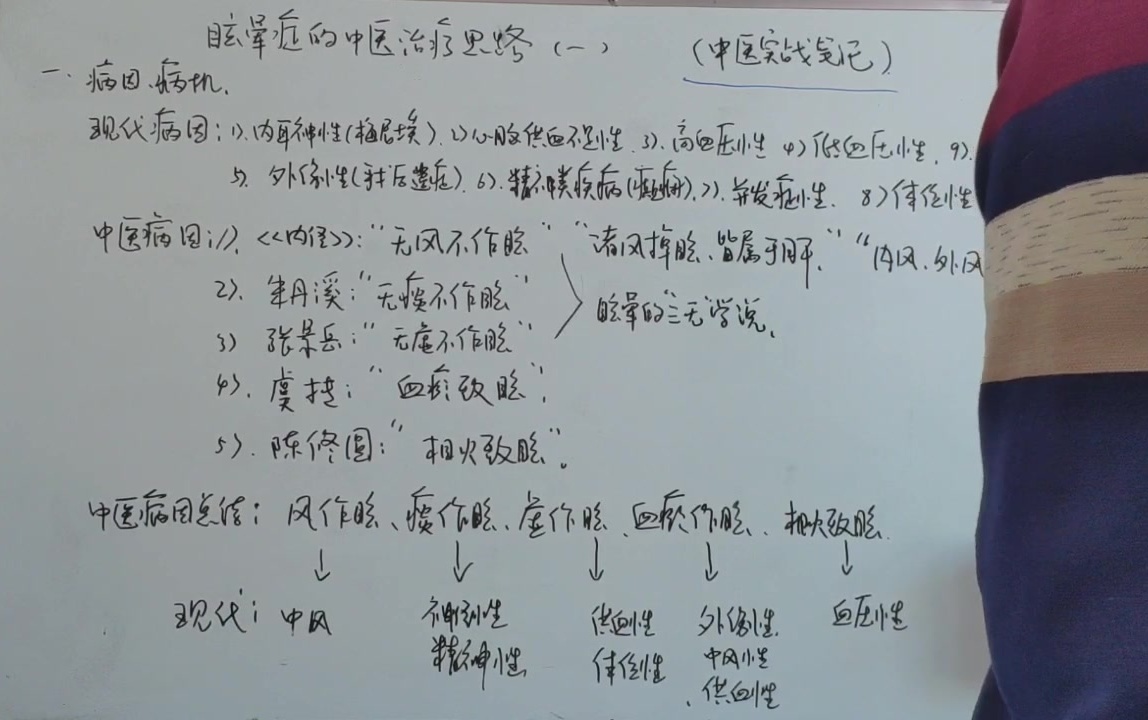 眩晕症的中医治疗思路（一） （中医实战笔记）
一、病因、病机.
现代病因：1）.内耳神性（梅尼埃）.2）心脑供血不足性.3）.高血压性 4）低血压性.9）.
5）.外伤性（私后遗症）.6）.精神类疾病（癔病）.7）.并发症性. 8）体位性
中医病因：1）.<<内经>>：“无风不作眩” “诸风掉眩、皆属于肝.” “内风、外风
2）.朱丹溪：“无痰不作眩” 眩晕的“三无”学说.
3）张景岳：“无虚不作眩”
4）.虞抟：“血瘀致眩”.
5）.陈修圆：“相火致眩”。
中医病因总结：风作眩、痰作眩、虚作眩、血瘀作眩、相火致眩.
现代：中风 神经性 供血性 外伤性 血压性
精神性 体位性 中风性
供血性